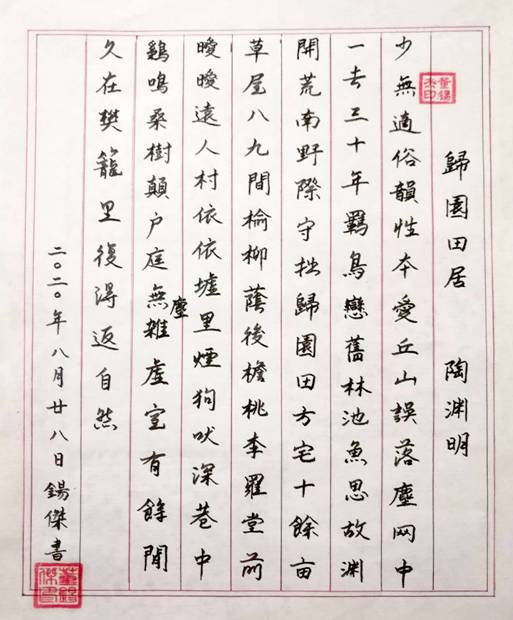 歸園田居 陶淵明
少無適俗韻性本愛丘山誤落塵网中
一去三十年羈鳥戀舊林池魚思故淵
開荒南野際守拙歸園田方宅十餘亩
草屋八九間榆柳蔭後檐桃李羅堂前
曖曖遠人村依依墟里煙狗吠深巷中
鷄鳴桑樹顛户庭無塵雜虛室有餘閒
久在樊籠里復得返自然
二〇二〇年八月廿八日 錫傑書
董錫杰印